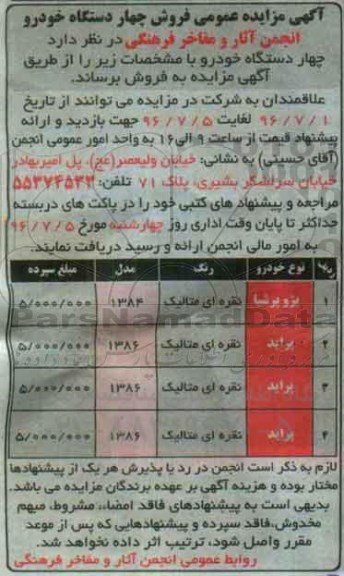 آگهی مزایده عمومی فروش چهار دستگاه خودرو
انجمن آثار و مفاخر فرهنگی در نظر دارد
چهار دستگاه خودرو با مشخصات زیر را از طریق
آگهی مزایده به فروش برساند.
علاقمندان به شرکت در مزایده می توانند از تاریخ
۹۶/۷/۱ لغایت ۹۶/۷/۵ جهت بازدید و ارائه
پیشنهاد قیمت از ساعت ۹ الی۱۶ به واحد امور عمومی انجمن
(آقای حسینی) به نشانی: خیابان ولیعصر(عج)، پل امیربهادر
خیابان سرلشگر بشیری، پلاک ۷۱ تلفن: ۵۵۳۷۴۵۳۳
مراجعه و پیشنهاد های کتبی خود را در پاکت های دربسته
حداکثر تا پایان وقت اداری روز چهارشنبه مورخ ۹۶/۷/۵
به امور مالی انجمن ارائه و رسید دریافت نمایند.
نوع خودرو رنگ مدل مبلغ سپرده
۱ پژو پرشیا نقره ای متالیک ۱۳۸۴ ۵/۰۰۰/۰۰۰
۲ پراید نقره ای متالیک ۱۳۸۶ ۵/۰۰۰/۰۰۰
۳ پراید نقره ای متالیک ۱۳۸۶ ۵/۰۰۰/۰۰۰
۴ پراید نقره ای متالیک ۱۳۸۶ ۵/۰۰۰/۰۰۰
ParsNamadData
لازم به ذکر است انجمن در رد یا پذیرش هر یک از پیشنهادها
مختار بوده و هزینه آگهی بر عهده برندگان مزایده می باشد.
بدیهی است به پیشنهادهای فاقد امضاء، مشروط، مبهم
مخدوش، فاقد سپرده و پیشنهادهایی که پس از موعد
مقرر واصل شود، ترتیب اثر داده نخواهد شد.
روابط عمومی انجمن آثار و مفاخر فرهنگی